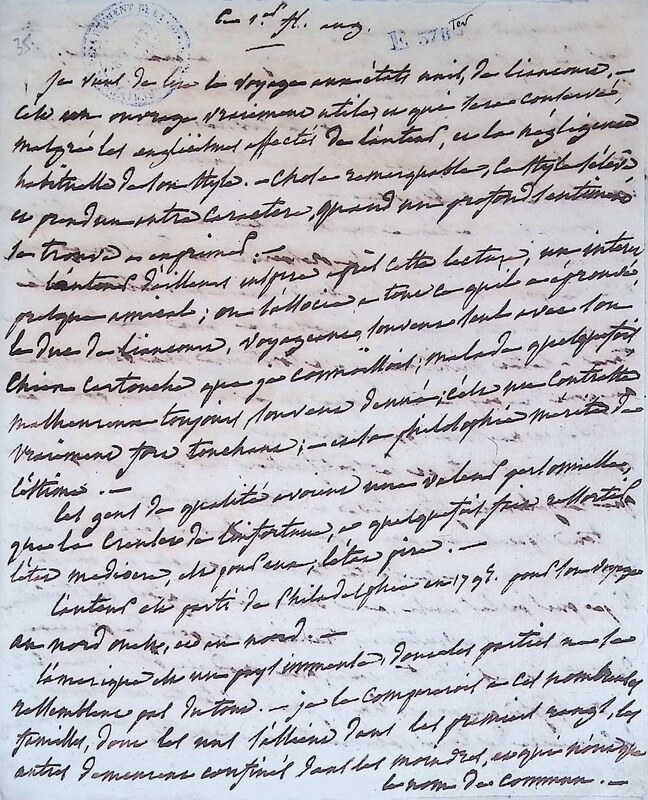 Ce 1.er fl. aug.
E 378 Ter
35
Je viens de lire le voyage aux états unis, de liancourt. —
C'est un ouvrage vraiment utile, et qui sera conservé,
malgré les anglicismes affectés de l'auteur, et la négligence
habituelle de son style. — Chose remarquable, ce style s'élève
et prend un autre caractère, quand un profond sentiment
se trouve exprimé. —
L'auteur d'ailleurs inspire après cette lecture, un intérêt
presque amical; on s'associe a tout ce qu'il a éprouvé
le duc de liancourt, voyageant, souvent seul avec son
Chien cartouche que je connoissois; malade quelquefois
malheureux toujours souvent dénué; c'est un contraste
vraiment fort touchant; — et sa philosophie mérite de
l'estime. —
Les gens de qualité avoient une valeur personnelle,
que la de l'infortune, a quelquefois fait ressortir
l'état médiocre, est pour eux, l'état pire. —
L'auteur est parti de Philadelphie en 179 pour son voyage
au nord ouest, et au nord. —
L'amérique est un pays immense, dont les parties ne se
ressemblent pas du tout. — je la comparerois a ces nombreuses
familles, dont les uns s'allient dans les premiers rangs, les
autres demeurent confinés dans les moindres, et qui n'ont que
le nom de commun. —